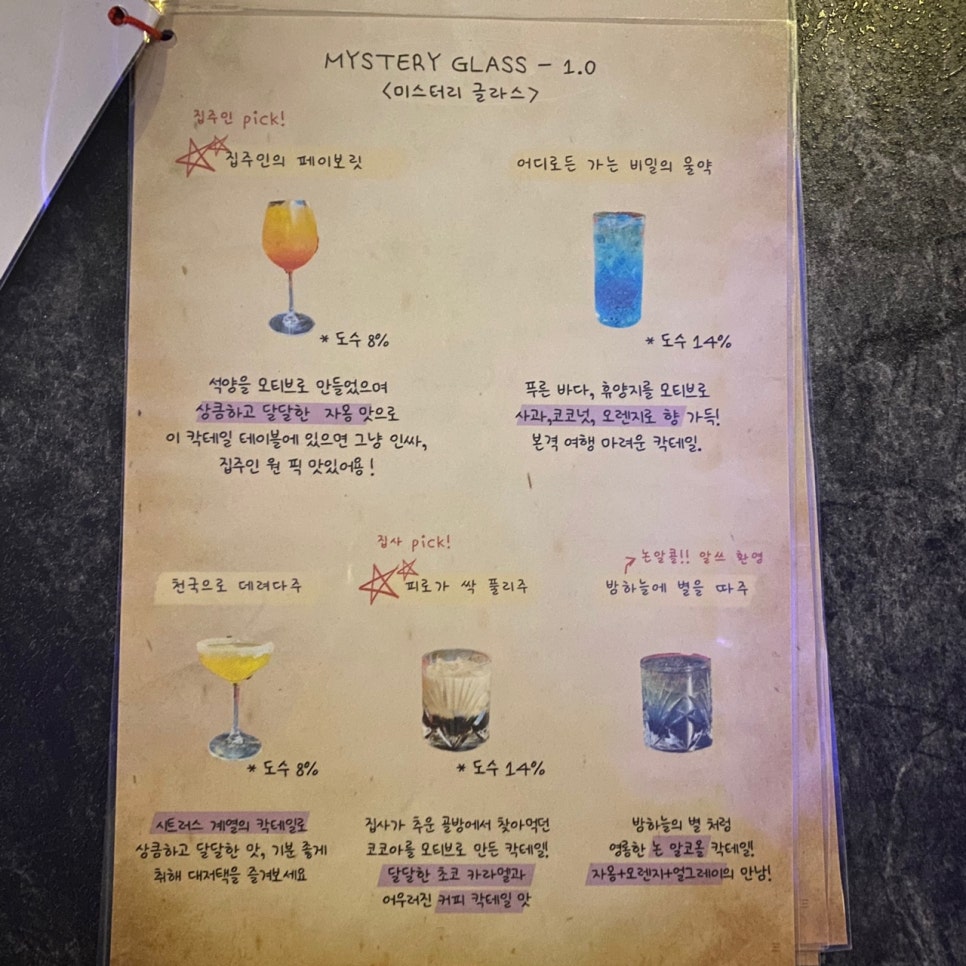 MYSTERY GLASS - 1.0
<미스터리 글라스>
집주인 pick!
집주인의 페이보릿
* 도수 8%
석양을 모티브로 만들었으며
상큼하고 달달한 자몽 맛으로
이 칵테일 테이블에 있으면 그냥 인싸,
집주인 원 픽 맛있어용!
어디로든 가는 비밀의 물약
* 도수 14%
푸른 바다, 휴양지를 모티브로
사과,코코넛, 오렌지로 향 가득!
본격 여행 마려운 칵테일.
천국으로 데려다주
* 도수 8%
시트러스 계열의 칵테일로
상큼하고 달달한 맛, 기분 좋게
취해 대저택을 즐겨보세요
집사 pick!
피로가 싹 풀리주
* 도수 14%
집사가 추운 골방에서 찾아먹던
코코아를 모티브로 만든 칵테일!
달달한 초코 카라멜과
어우러진 커피 칵테일 맛
논알콜!! 알쓰 환영
밤하늘에 별을 따주
밤하늘의 별 처럼
영롱한 논 알코올 칵테일!
자몽+오렌지+얼그레이의 만남!